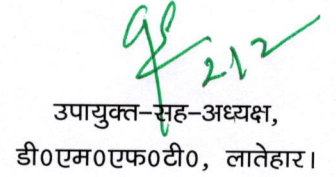 212
उपायुक्त-सह-अध्यक्ष,
डी०एम०एफ०टी०, लातेहार।